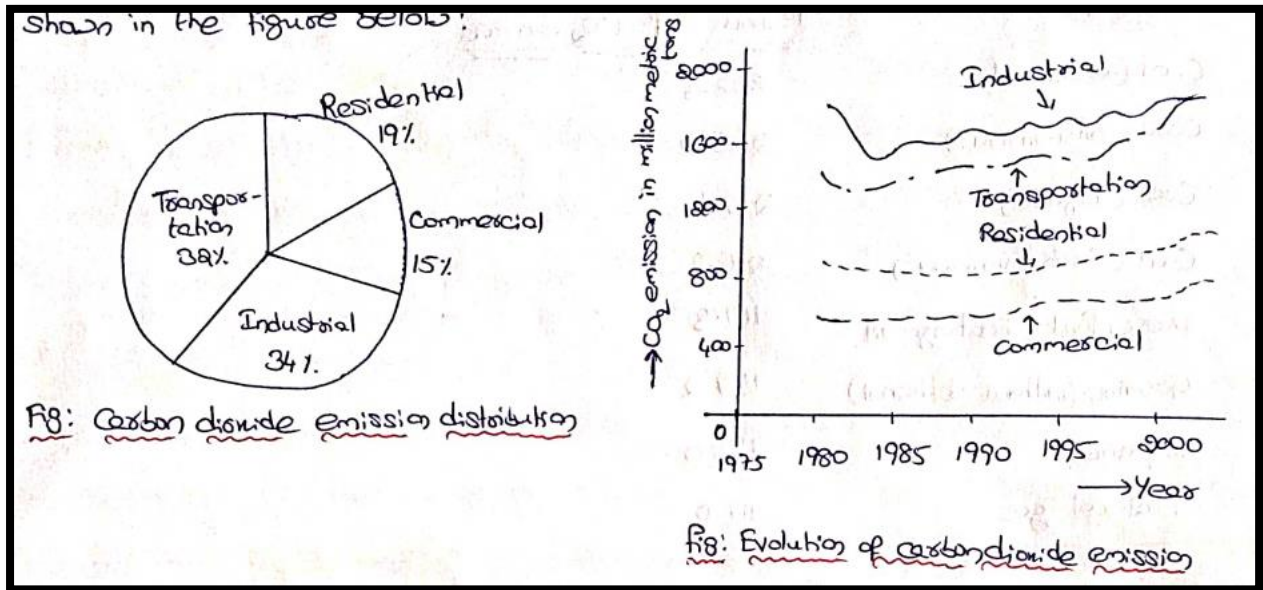 shown in the figure below:
Residential
19%
Transpor-
tation
32%
Commercial
15%
Industrial
34%
Fig: Carbon dioxide emission distribution
→ CO2 emission in million metric tons
2000
1600
1200
800
400
0
Industrial
Transportation
Residential
Commercial
1975 1980 1985 1990 1995 2000
→ Year
Fig: Evolution of carbon dioxide emission